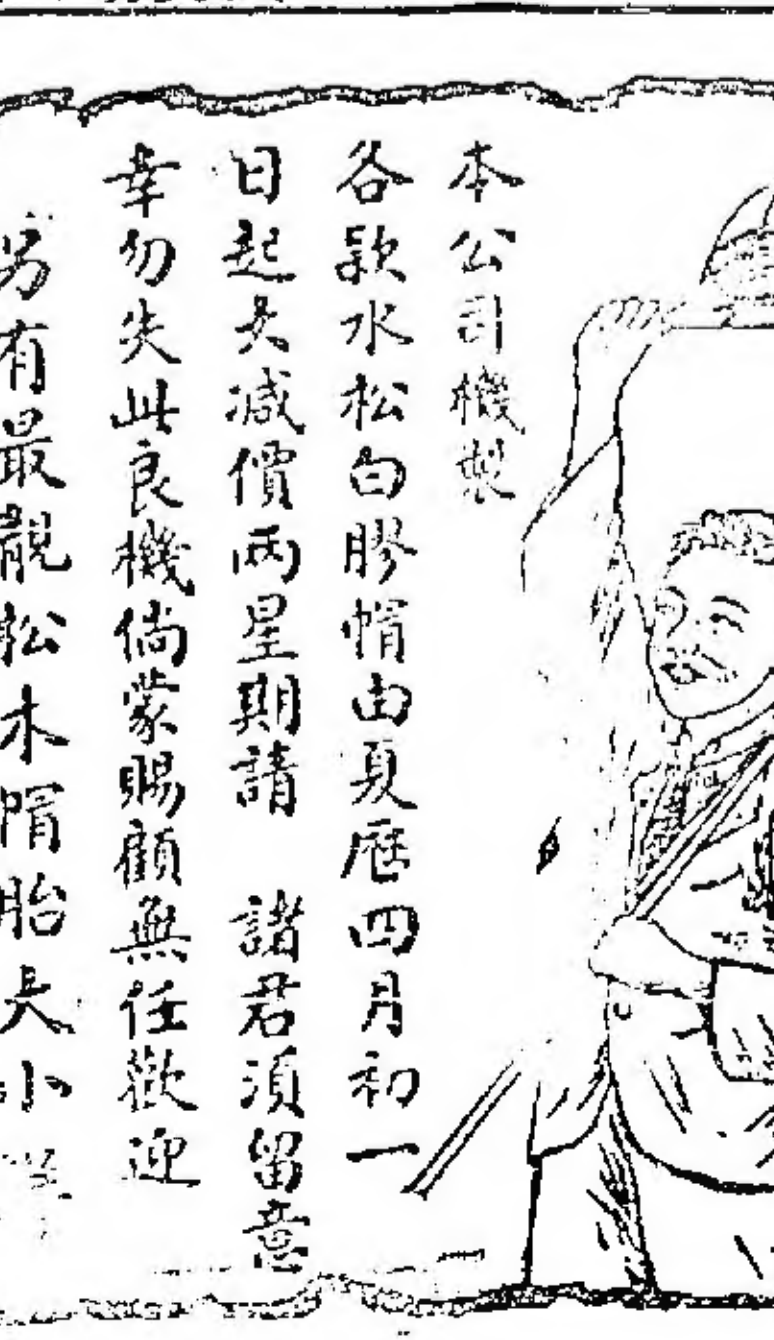 本公司機製
各款水松白膠帽由夏歷四月初一
日起大减價两星期請　諸君須留意
幸勿失此良機倘蒙賜顧無任歡迎
另有最靚松木帽胎大小